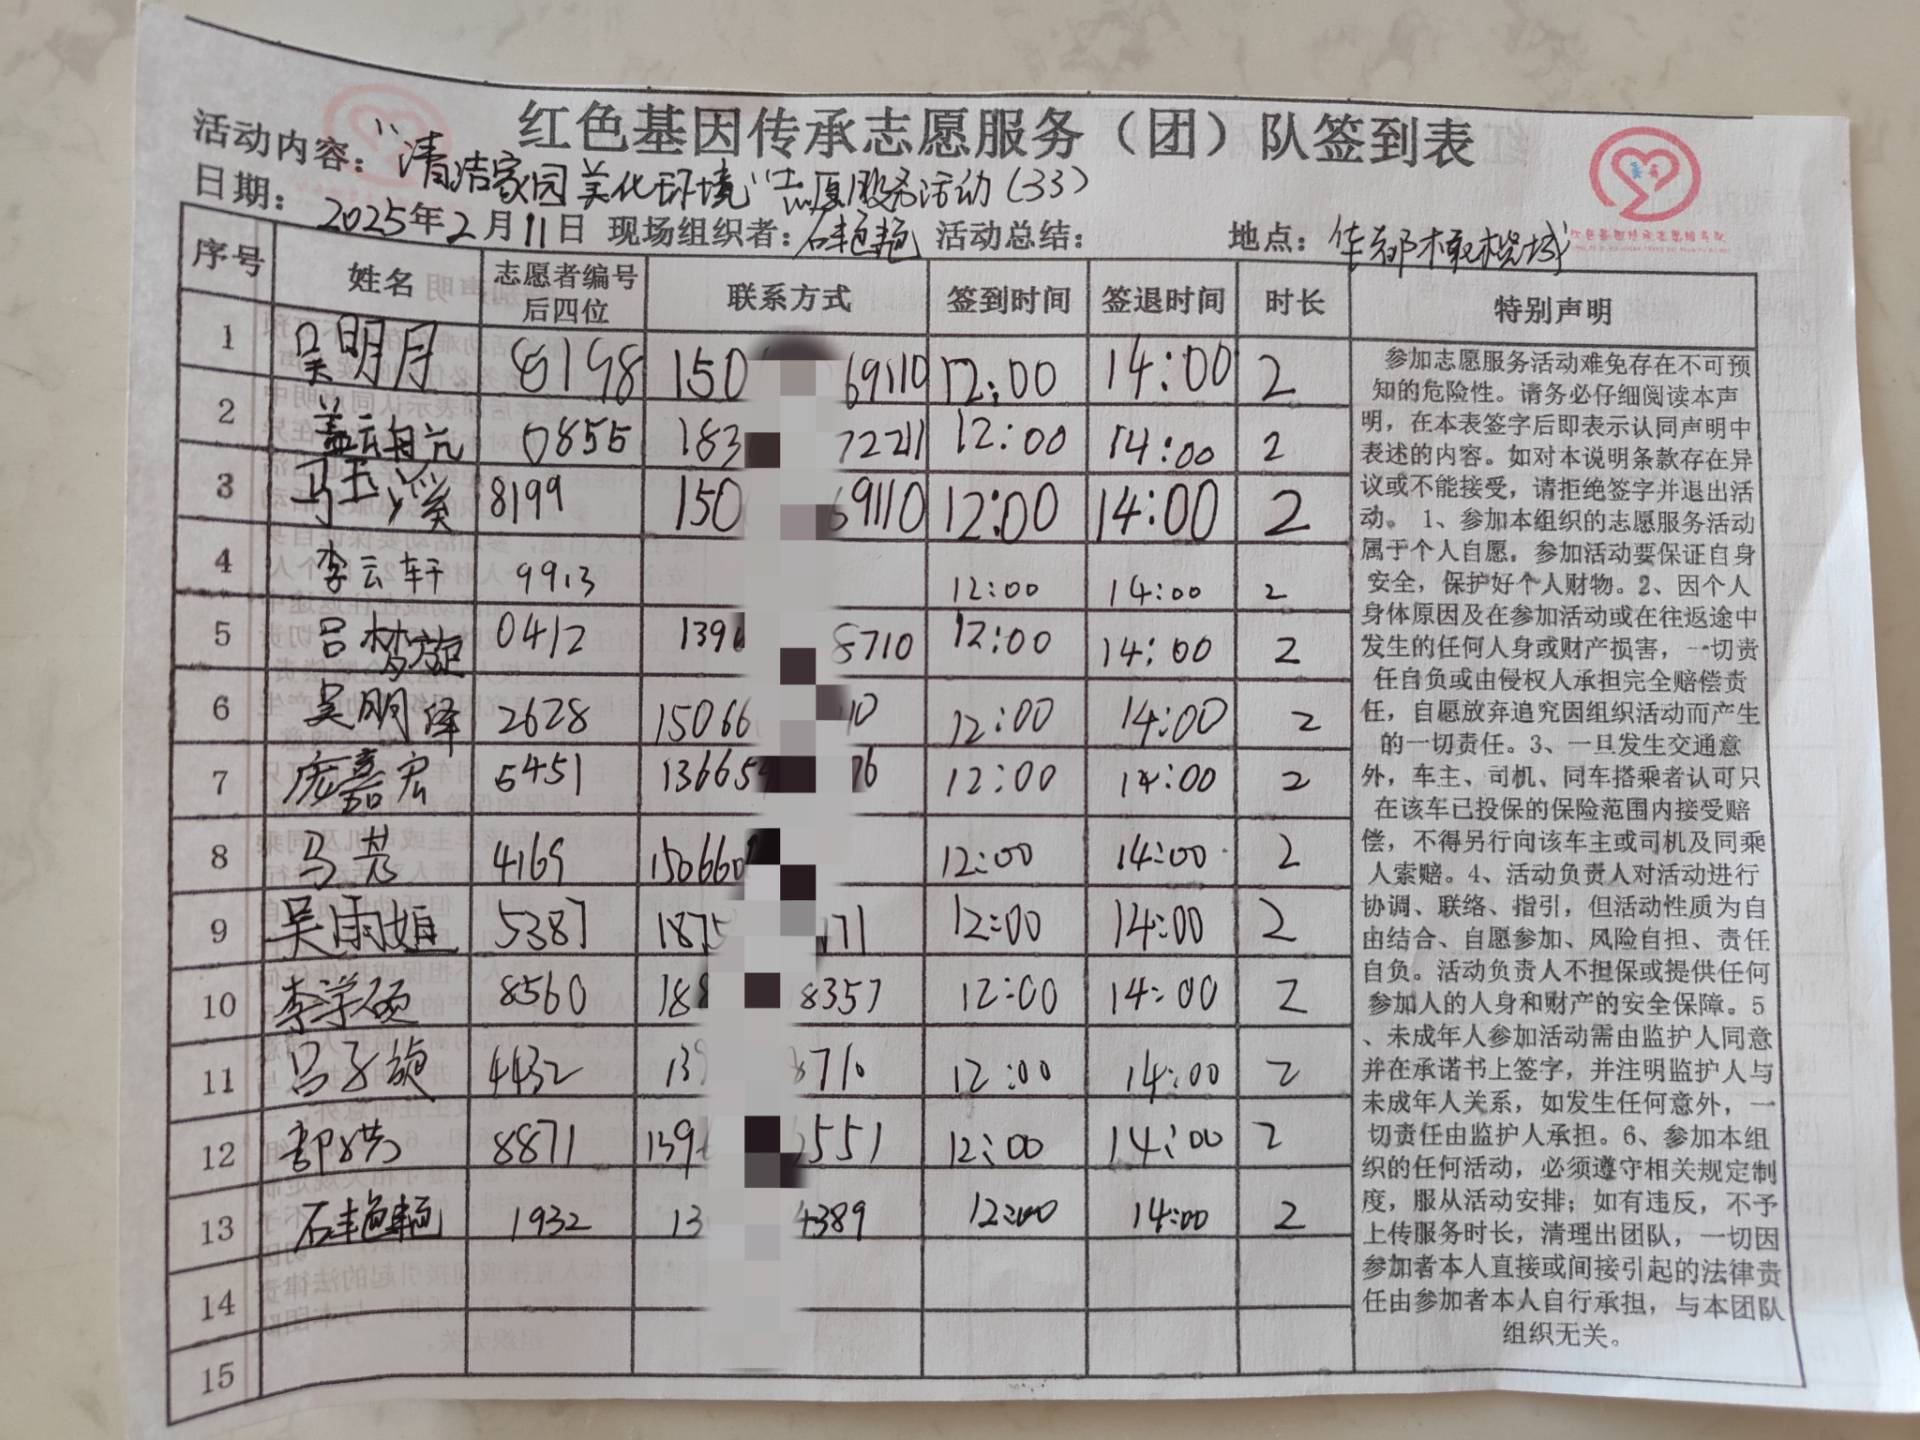 红色基因传承志愿服务（团）队签到表
活动内容："清洁家园美化环境"志愿服务活动（33）
日期：2025年2月11日 现场组织者：石艳艳 活动总结： 地点：华都橄榄城
序号 姓名 志愿者编号后四位 联系方式 签到时间 签退时间 时长 特别声明
1 吴明月 8198 150 69110 12:00 14:00 2
2 盖云 0855 183 72211 12:00 14:00 2
3 马玉溪 8199 150 69110 12:00 14:00 2
4 李云轩 9913 12:00 14:00 2
5 吕梦旋 0412 139 8710 12:00 14:00 2
6 吴明泽 2628 15066 10 12:00 14:00 2
7 庞嘉宏 5451 13665 76 12:00 14:00 2
8 马芸 4169 150660 12:00 14:00 2
9 吴雨姮 5387 1875 171 12:00 14:00 2
10 李学硕 8560 188 8357 12:00 14:00 2
11 吕子旋 4432 139 8710 12:00 14:00 2
12 郭洪 8871 139 2551 12:00 14:00 2
13 石艳艳 1932 13 4389 12:00 14:00 2
14
15
参加志愿服务活动难免存在不可预
知的危险性。请务必仔细阅读本声
明，在本表签字后即表示认同声明中
表述的内容。如对本说明条款存在异
议或不能接受，请拒绝签字并退出活
动。1、参加本组织的志愿服务活动
属于个人自愿，参加活动要保证自身
安全，保护好个人财物。2、因个人
身体原因及在参加活动或在往返途中
发生的任何人身或财产损害，一切责
任自负或由侵权人承担完全赔偿责
任，自愿放弃追究因组织活动而产生
的一切责任。3、一旦发生交通意
外，车主、司机、同车搭乘者认可只
在该车已投保的保险范围内接受赔
偿，不得另行向该车主或司机及同乘
人索赔。4、活动负责人对活动进行
协调、联络、指引，但活动性质为自
由结合、自愿参加、风险自担、责任
自负。活动负责人不担保或提供任何
参加人的人身和财产的安全保障。5
、未成年人参加活动需由监护人同意
并在承诺书上签字，并注明监护人与
未成年人关系，如发生任何意外，一
切责任由监护人承担。6、参加本组
织的任何活动，必须遵守相关规定制
度，服从活动安排；如有违反，不予
上传服务时长，清理出团队，一切因
参加者本人直接或间接引起的法律责
任由参加者本人自行承担，与本团队
组织无关。